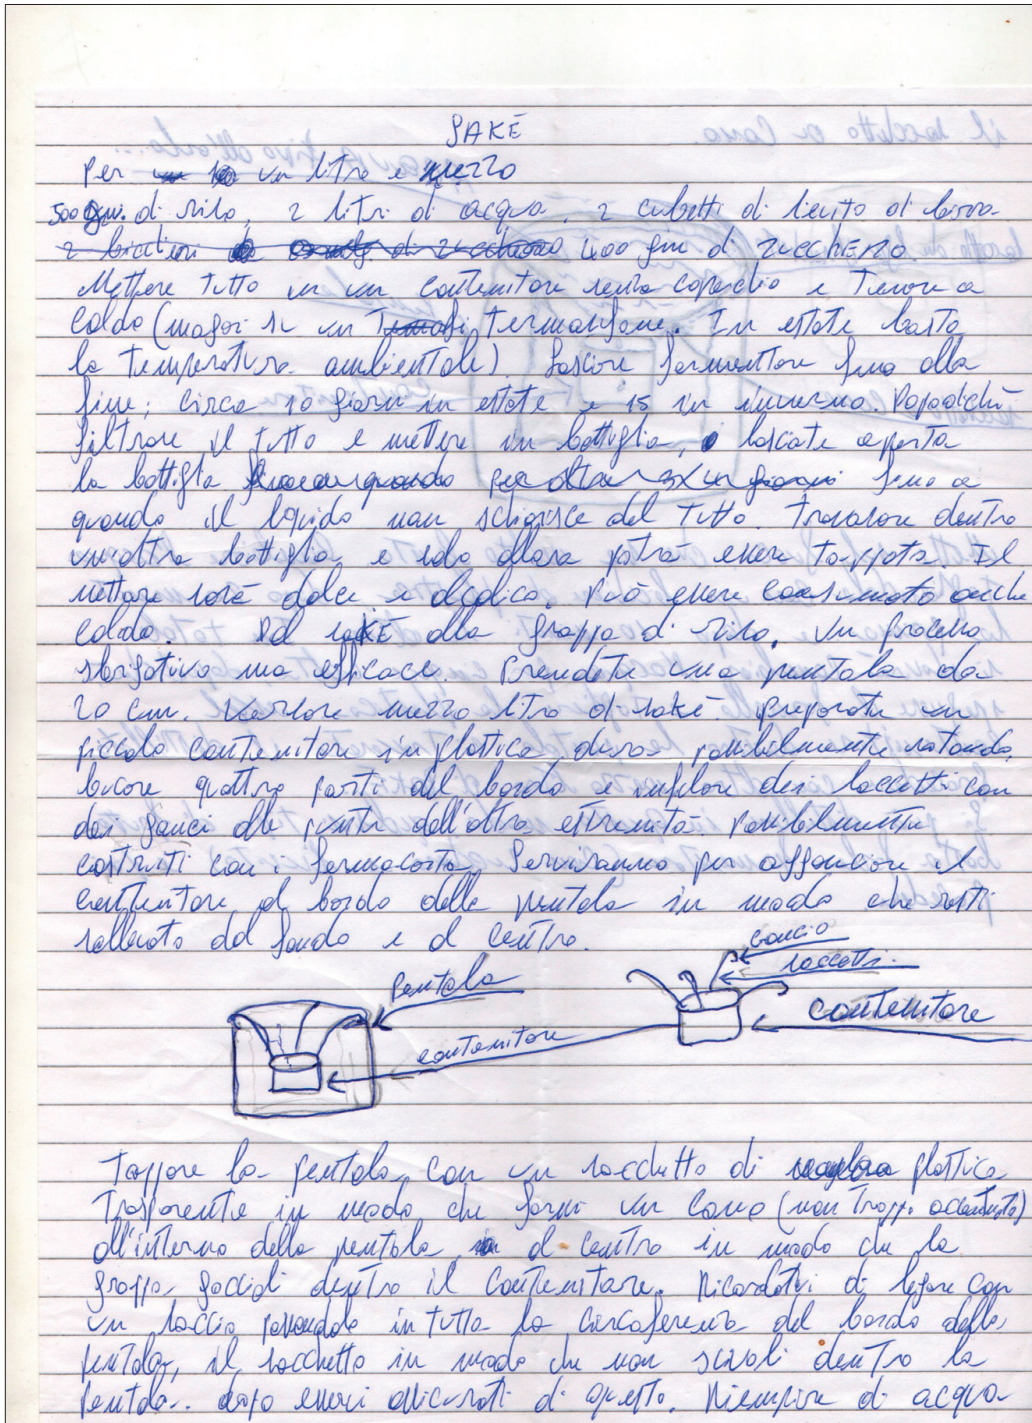 SAKÈ
Per un litro e mezzo
500 gm. di riso, 2 litri di acqua, 2 cubetti di lievito di birra
2 bicchieri di zucchero 400 gm di zuccHERO.
Mettere tutto in un contenitore senza coperchio e tenere a
caldo (magari su un Termosifone. In estate basta
la temperatura ambientale). Lasciare fermentare fino alla
fine; circa 10 giorni in estate e 15 in inverno. Dopodichè
filtrare il tutto e mettere in bottiglia, lasciate aperta
la bottiglia fino a
quando il liquido non schiarisce del tutto. Travasare dentro
un'altra bottiglia e solo allora potrà essere tappata. Il
nettare sarà dolce e alcolico. Può essere consumato anche
caldo. Dal saKÈ alla grappa di riso. Un processo
sbrigativo ma efficace. Prendete una pentola da
20 cm. Versare mezzo litro di sakè. preparate un
piccolo contenitore in plastica dura possibilmente rotondo,
bucare quattro parti del bordo e infilare dei laccetti con
dei ganci alla punta dell'altra estremità. possibilmente
costruiti con i fermacarta. Serviranno per agganciare il
contenitore al bordo della pentola in modo che resti
sollevato dal fondo e al centro.
Gancio
laccetti.
pentola
contenitore
contenitore
Tappare la pentola con un sacchetto di plastica
trasparente in modo che formi un cono (non troppo accentuato)
all'interno della pentola al centro in modo che la
grappa goccioli dentro il contenitore. Ricordatevi di legare con
un laccio passandolo in tutta la circonferenza del bordo della
pentola, il sacchetto in modo che non scivoli dentro la
pentola. dopo esservi assicurati di questo. Riempire di acqua